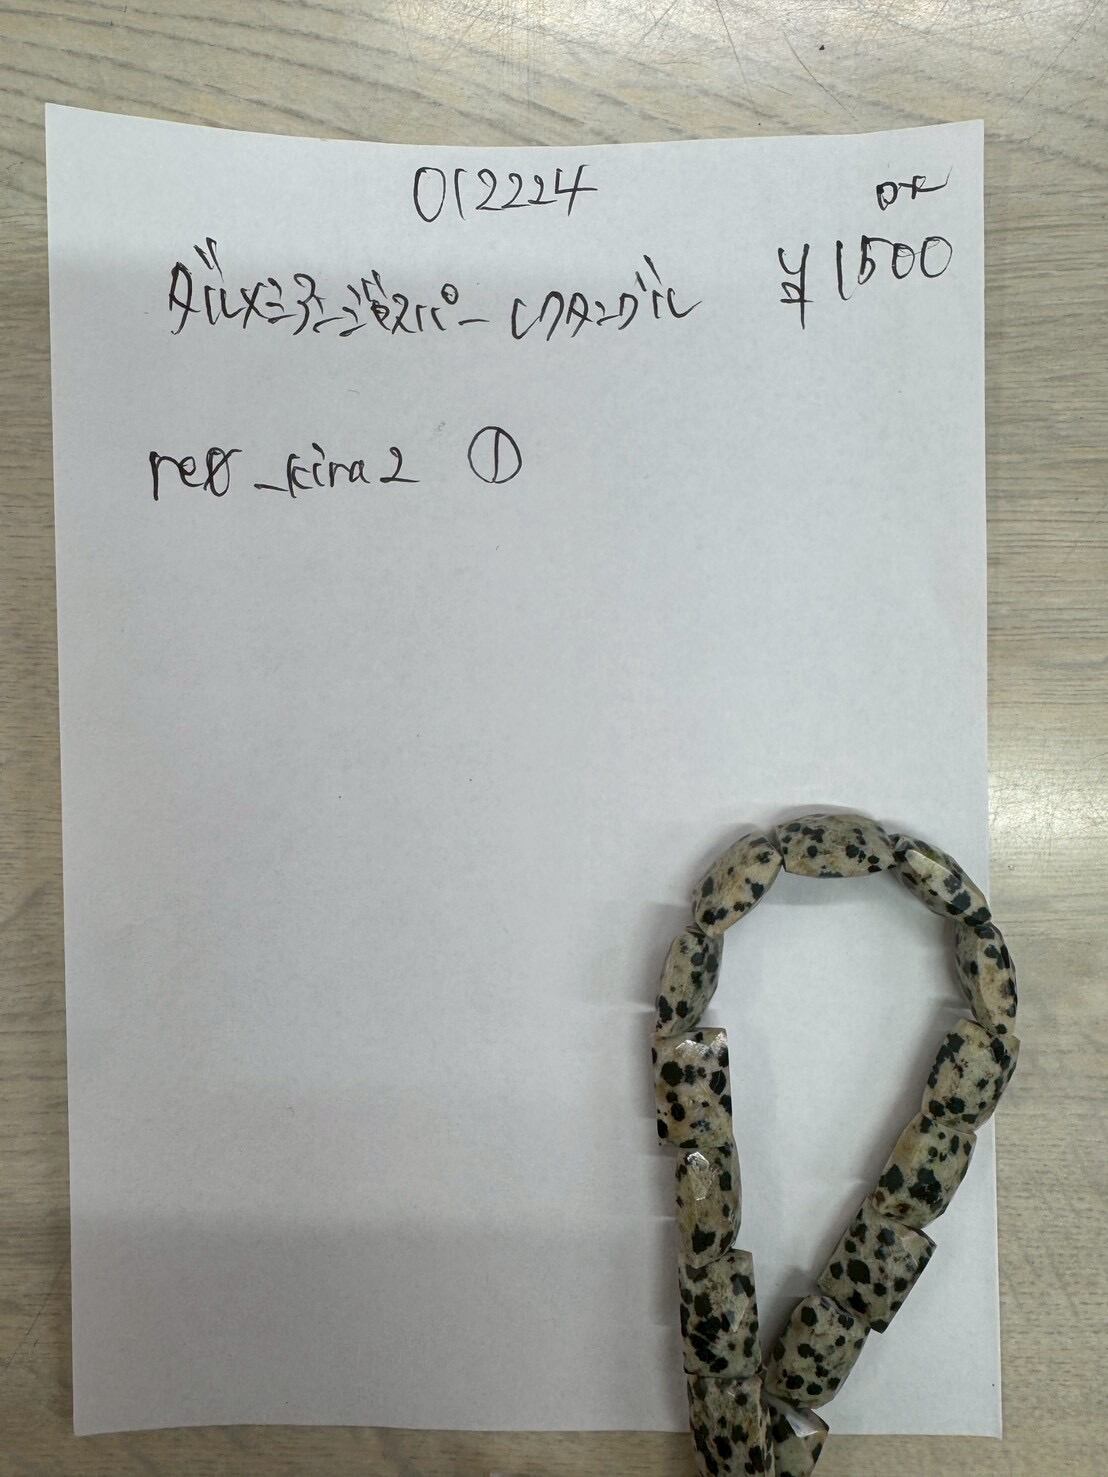 012224
ダルメシアンジャスパーレクタングル ¥1500
reo_kira2 ①